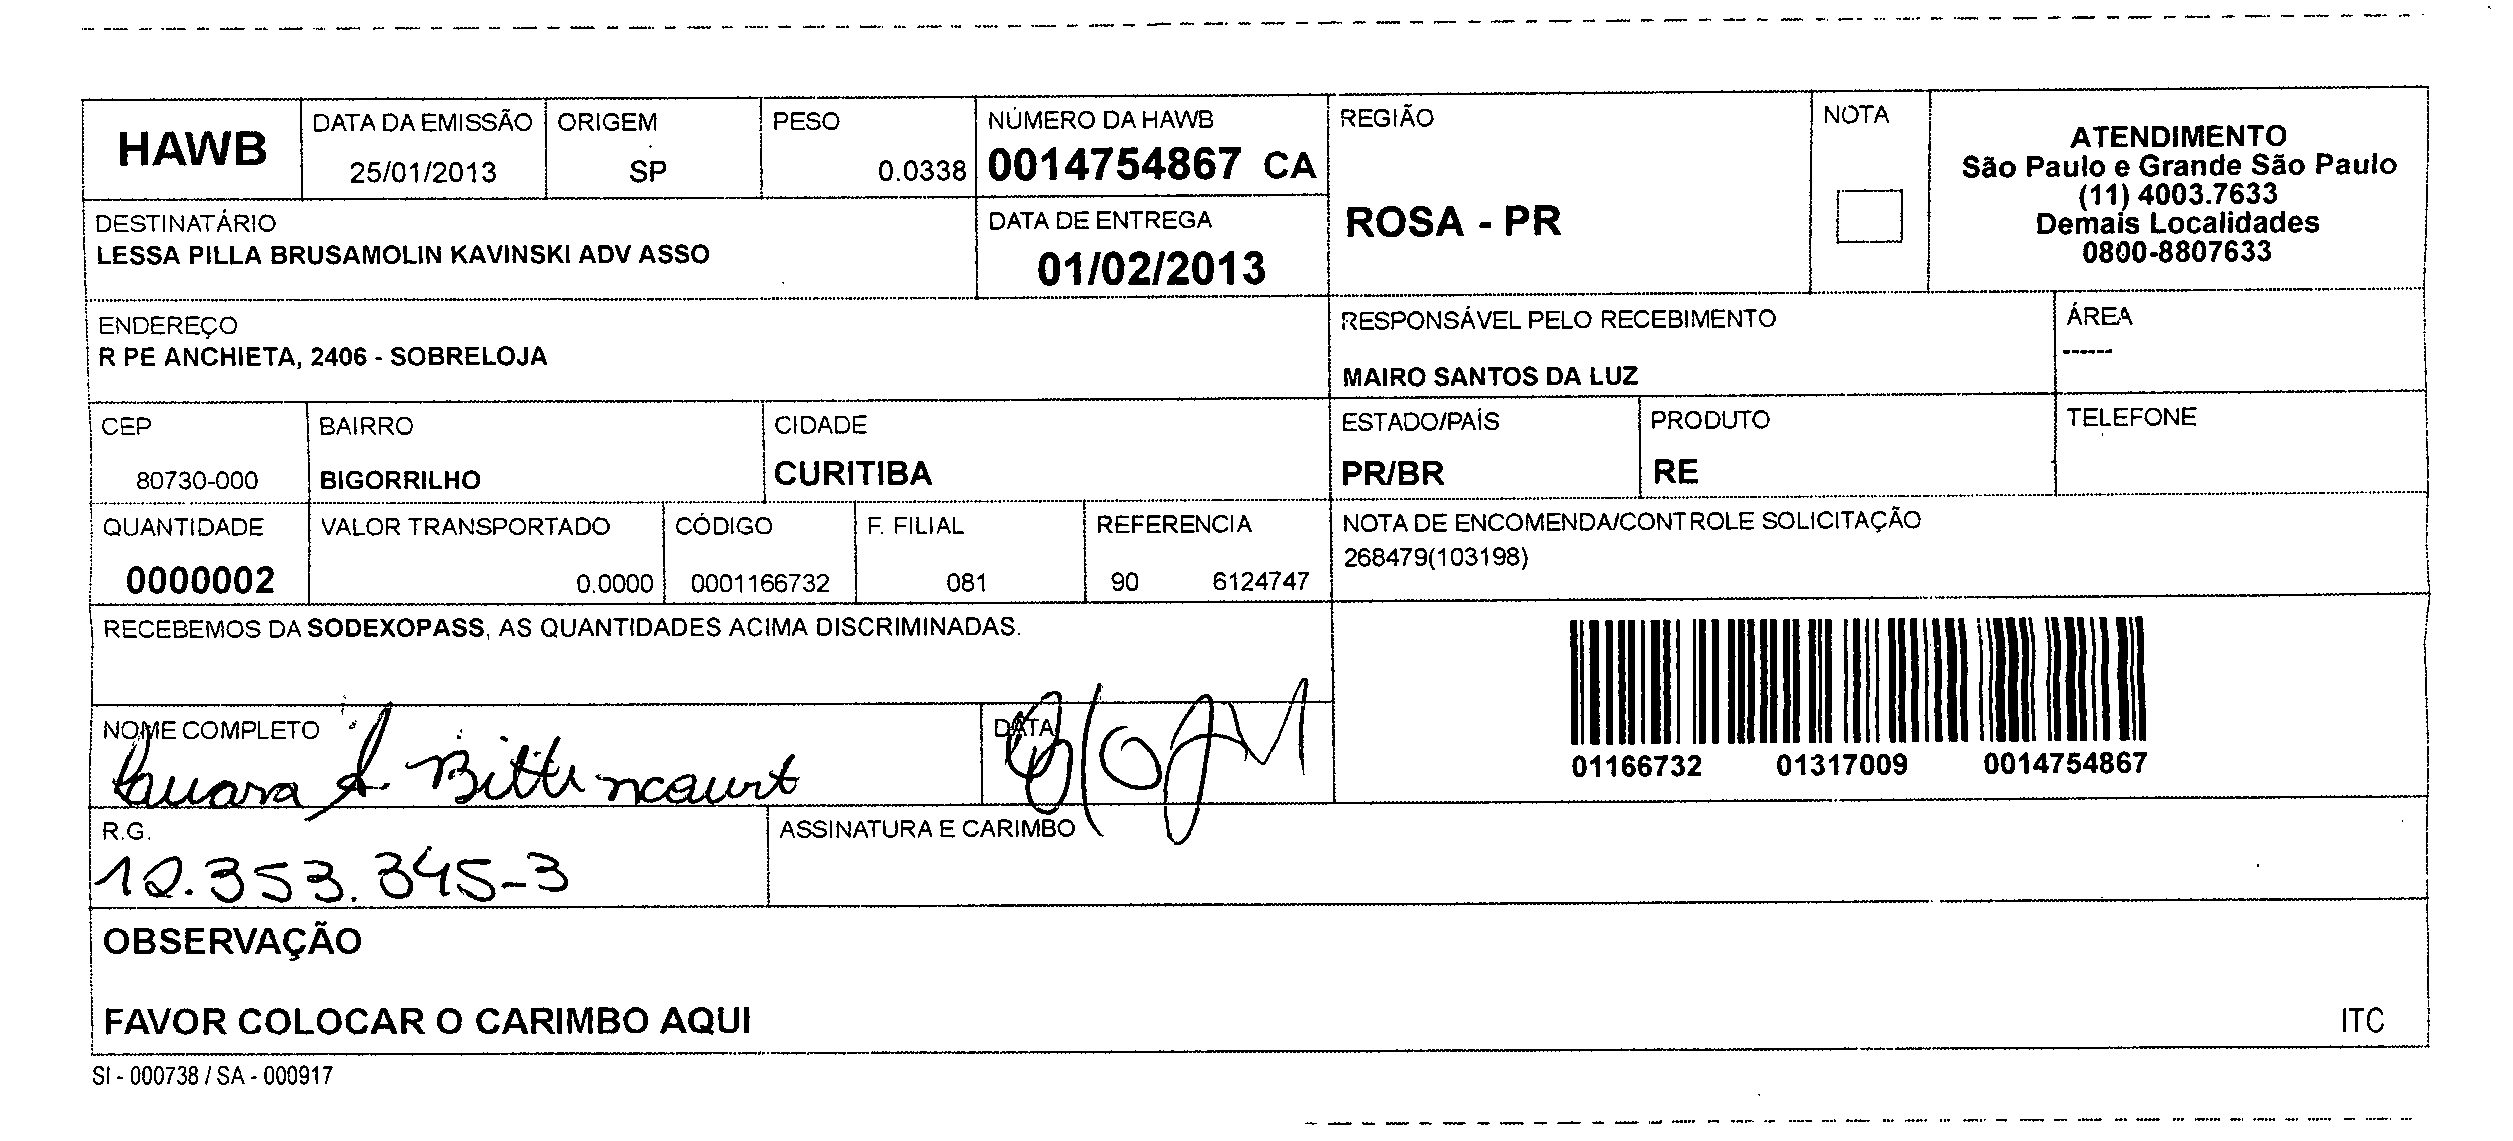 HAWB
DATA DA EMISSÃO
25/01/2013
ORIGEM
SP
PESO
0.0338
NÚMERO DA HAWB
0014754867 CA
REGIÃO
ROSA - PR
NOTA
ATENDIMENTO
São Paulo e Grande São Paulo
(11) 4003.7633
Demais Localidades
0800-8807633
DESTINATÁRIO
LESSA PILLA BRUSAMOLIN KAVINSKI ADV ASSO
DATA DE ENTREGA
01/02/2013
ENDEREÇO
R PE ANCHIETA, 2406 - SOBRELOJA
RESPONSÁVEL PELO RECEBIMENTO
MAIRO SANTOS DA LUZ
ÁREA
------
CEP
80730-000
BAIRRO
BIGORRILHO
CIDADE
CURITIBA
ESTADO/PAÍS
PR/BR
PRODUTO
RE
TELEFONE
QUANTIDADE
0000002
VALOR TRANSPORTADO
0.0000
CÓDIGO
0001166732
F. FILIAL
081
REFERENCIA
90 6124747
NOTA DE ENCOMENDA/CONTROLE SOLICITAÇÃO
268479(103198)
RECEBEMOS DA SODEXOPASS, AS QUANTIDADES ACIMA DISCRIMINADAS.
01166732 01317009 0014754867
NOME COMPLETO
Bittencourt
DATA
R.G.
12.353.345-3
ASSINATURA E CARIMBO
OBSERVAÇÃO
FAVOR COLOCAR O CARIMBO AQUI
ITC
SI - 000738 / SA - 000917